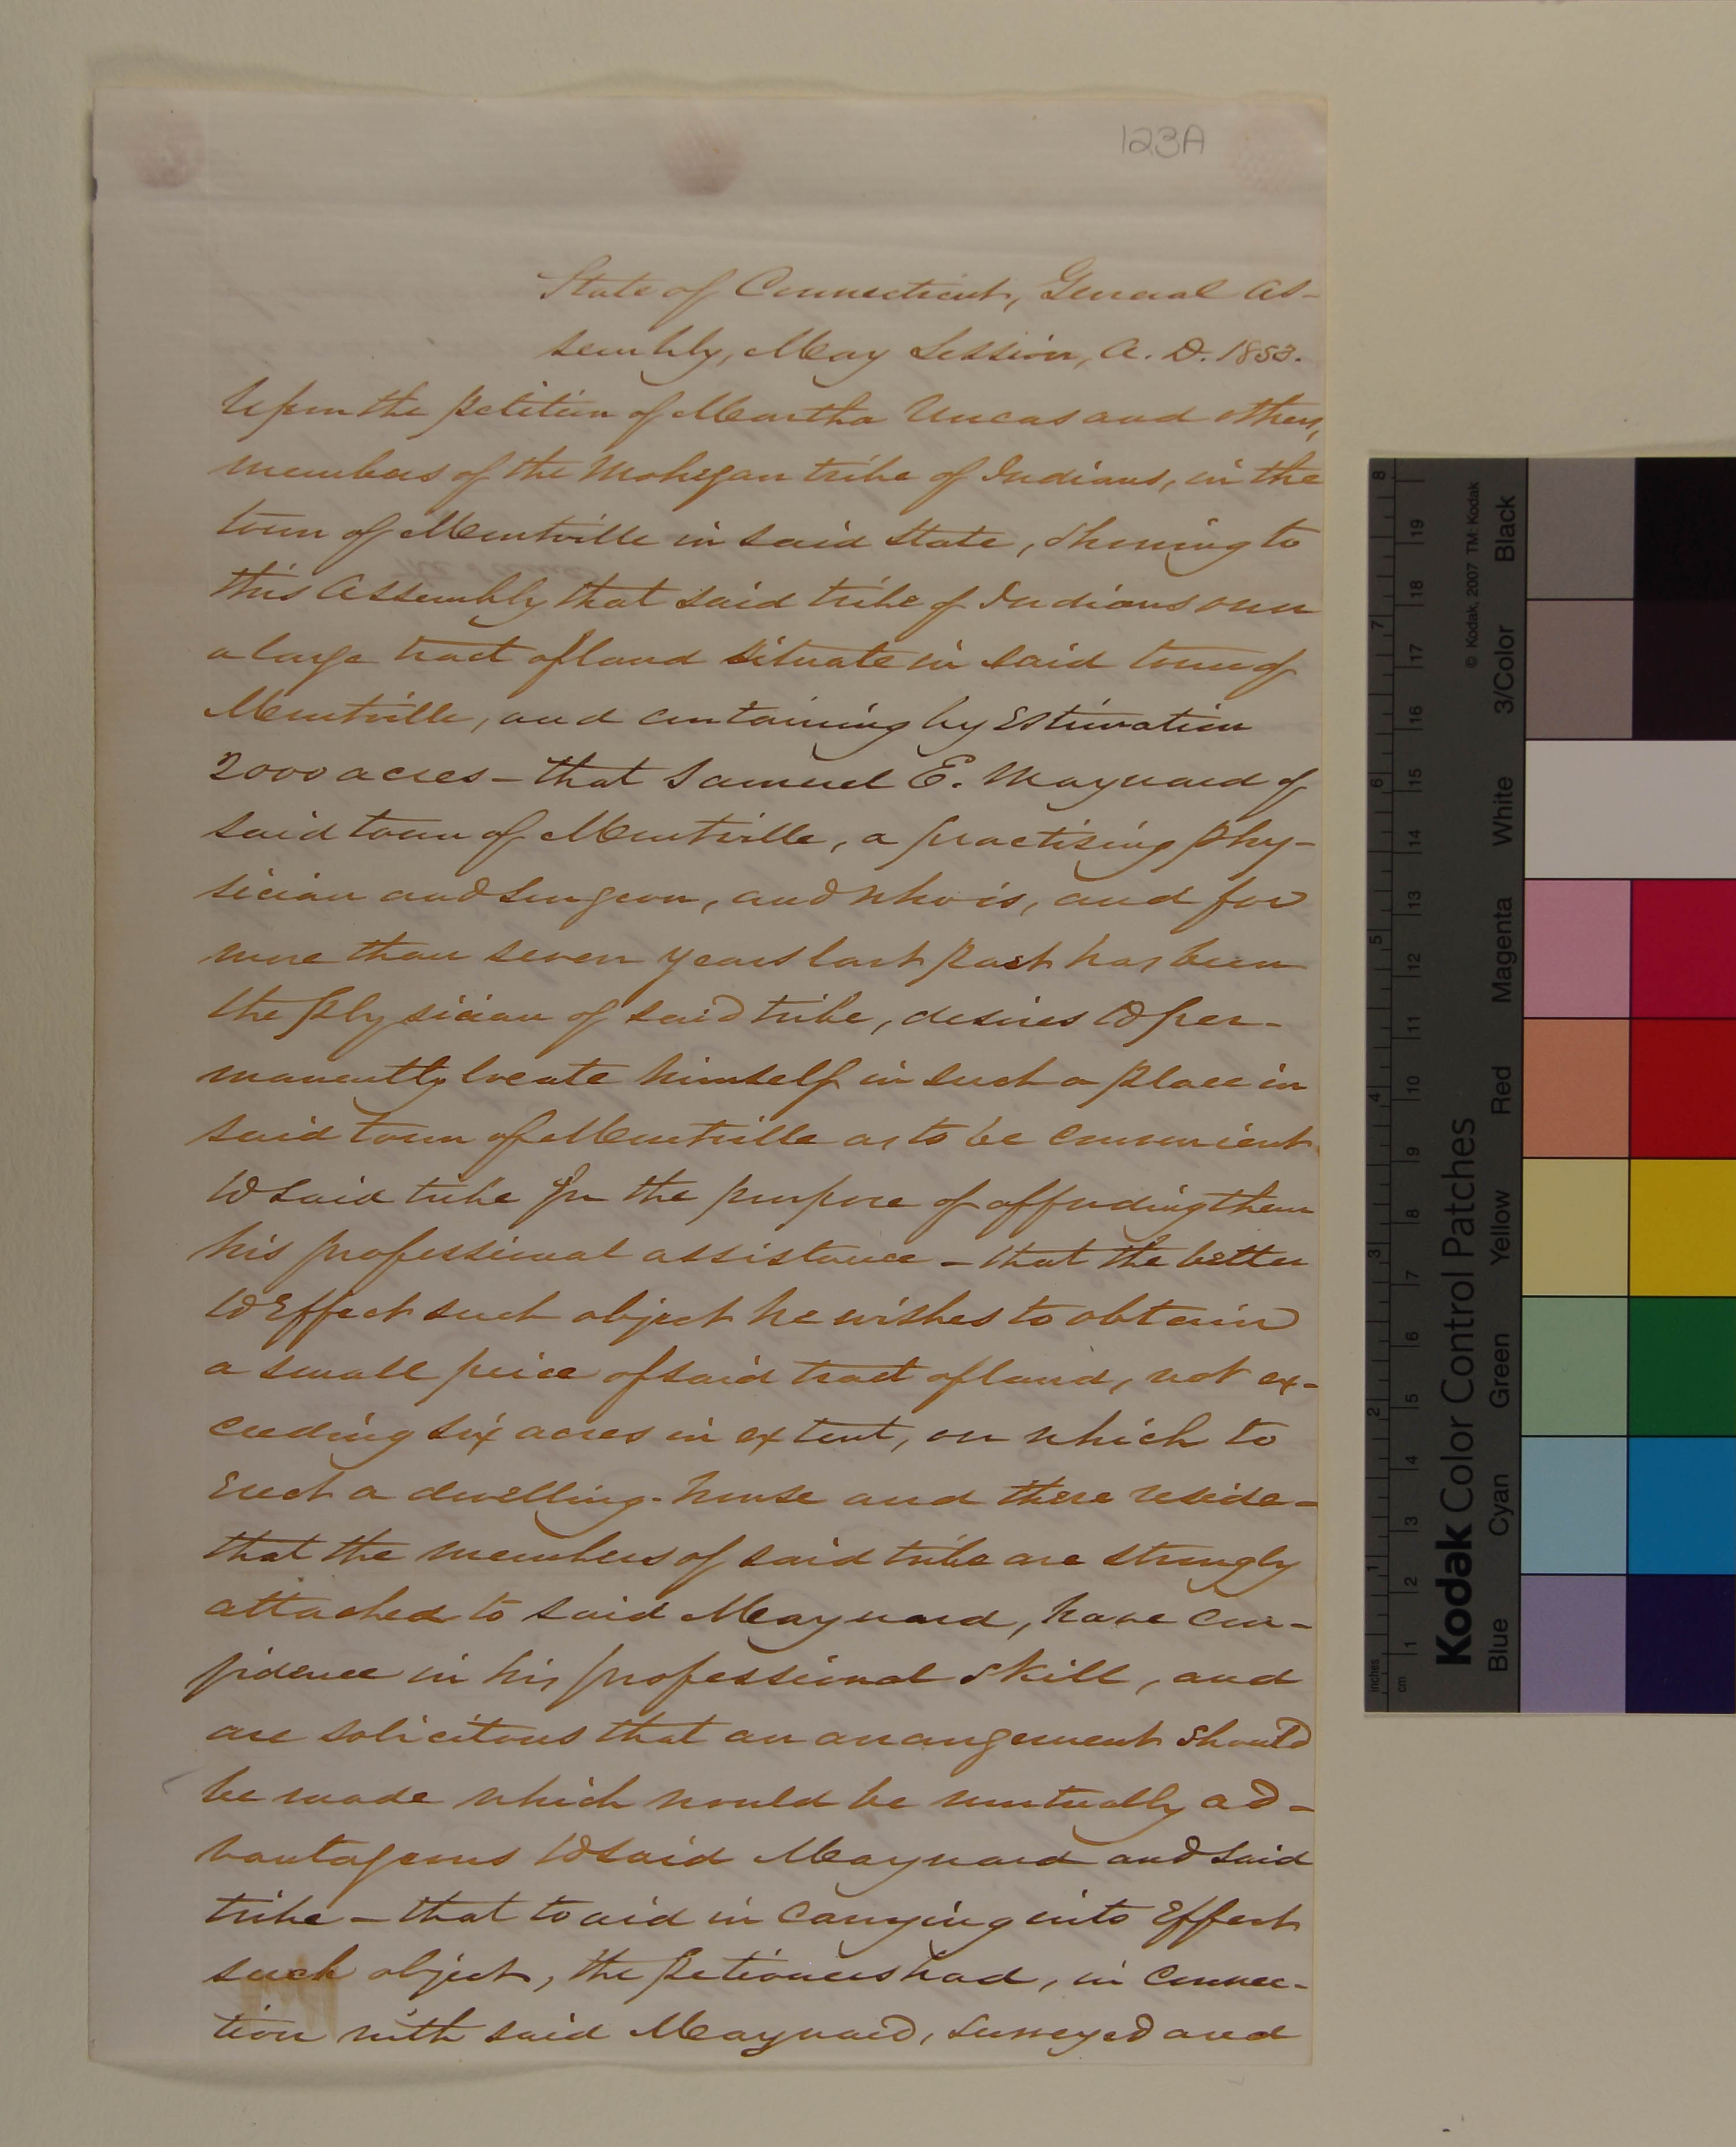 123A
State of Connecticut, General As-
sembly, May Session, A. D. 1853.
Upon the petition of Martha Uncas and others,
members of the Mohegan tribe of Indians, in the
town of Montville in said State, showing to
this Assembly that said tribe of Indians own
a large tract of land situate in said town of
Montville, and containing by estimation
2000 acres – that Samuel E. Maynard of
said town of Montville, a practising phy-
sician and surgeon, and who is, and for
more than seven years last past has been
the physician of said tribe, desires to per-
manently locate himself in such a place in
said town of Montville as to be convenient
to said tribe for the purpose of affording them
his professional assistance – that the better
to effect such object he wishes to obtain
a small peice of said tract of land, not ex-
ceeding six acres in extent, on which to
erect a dwelling-house and there reside –
that the members of said tribe are strongly
attached to said Maynard, have con-
fidence in his professional skill, and
are solicitous that an arrangement should
be made which would be mutually ad-
vantageous to said Maynard and said
tribe – that to aid in carrying into effect
such object, the petioners had, in connec-
tion with said Maynard, surveyed and
Kodak Color Control Patches
© Kodak, 2007 TM: Kodak
Blue Cyan Green Yellow Red Magenta White 3/Color Black
inches 1 2 3 4 5 6 7 8
cm 1 2 3 4 5 6 7 8 9 10 11 12 13 14 15 16 17 18 19